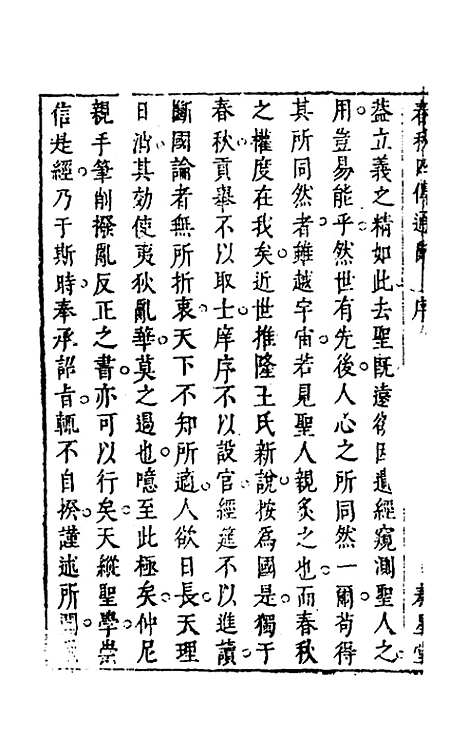 春秋四傳通 序
蓋立義之精如此去聖既遠欲因遺經窺測聖人之
用豈易能乎然世有先後人心之所同然一爾苟得
其所同然者雖越宇宙若見聖人親炙之也而春秋
之權度在我矣近世推隆王氏新說按為國是獨于
春秋貢舉不以取士庠序不以設官經筵不以進讀
斷國論者無所折衷天下不知所適人欲日長天理
日消其効使夷狄亂華莫之遏也噫至此極矣仲尼
親手筆削撥亂反正之書亦可以行矣天縱聖學崇
信是經乃于斯時奉承詔旨輒不自揆謹述所聞